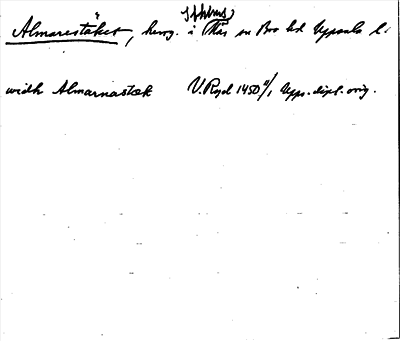 Almarestäket, herrg. i Ås sn Bro hd Uppsala l.
widh Almarnastæk V.Ryd 1450 2/1 Upps. dipl. orig.